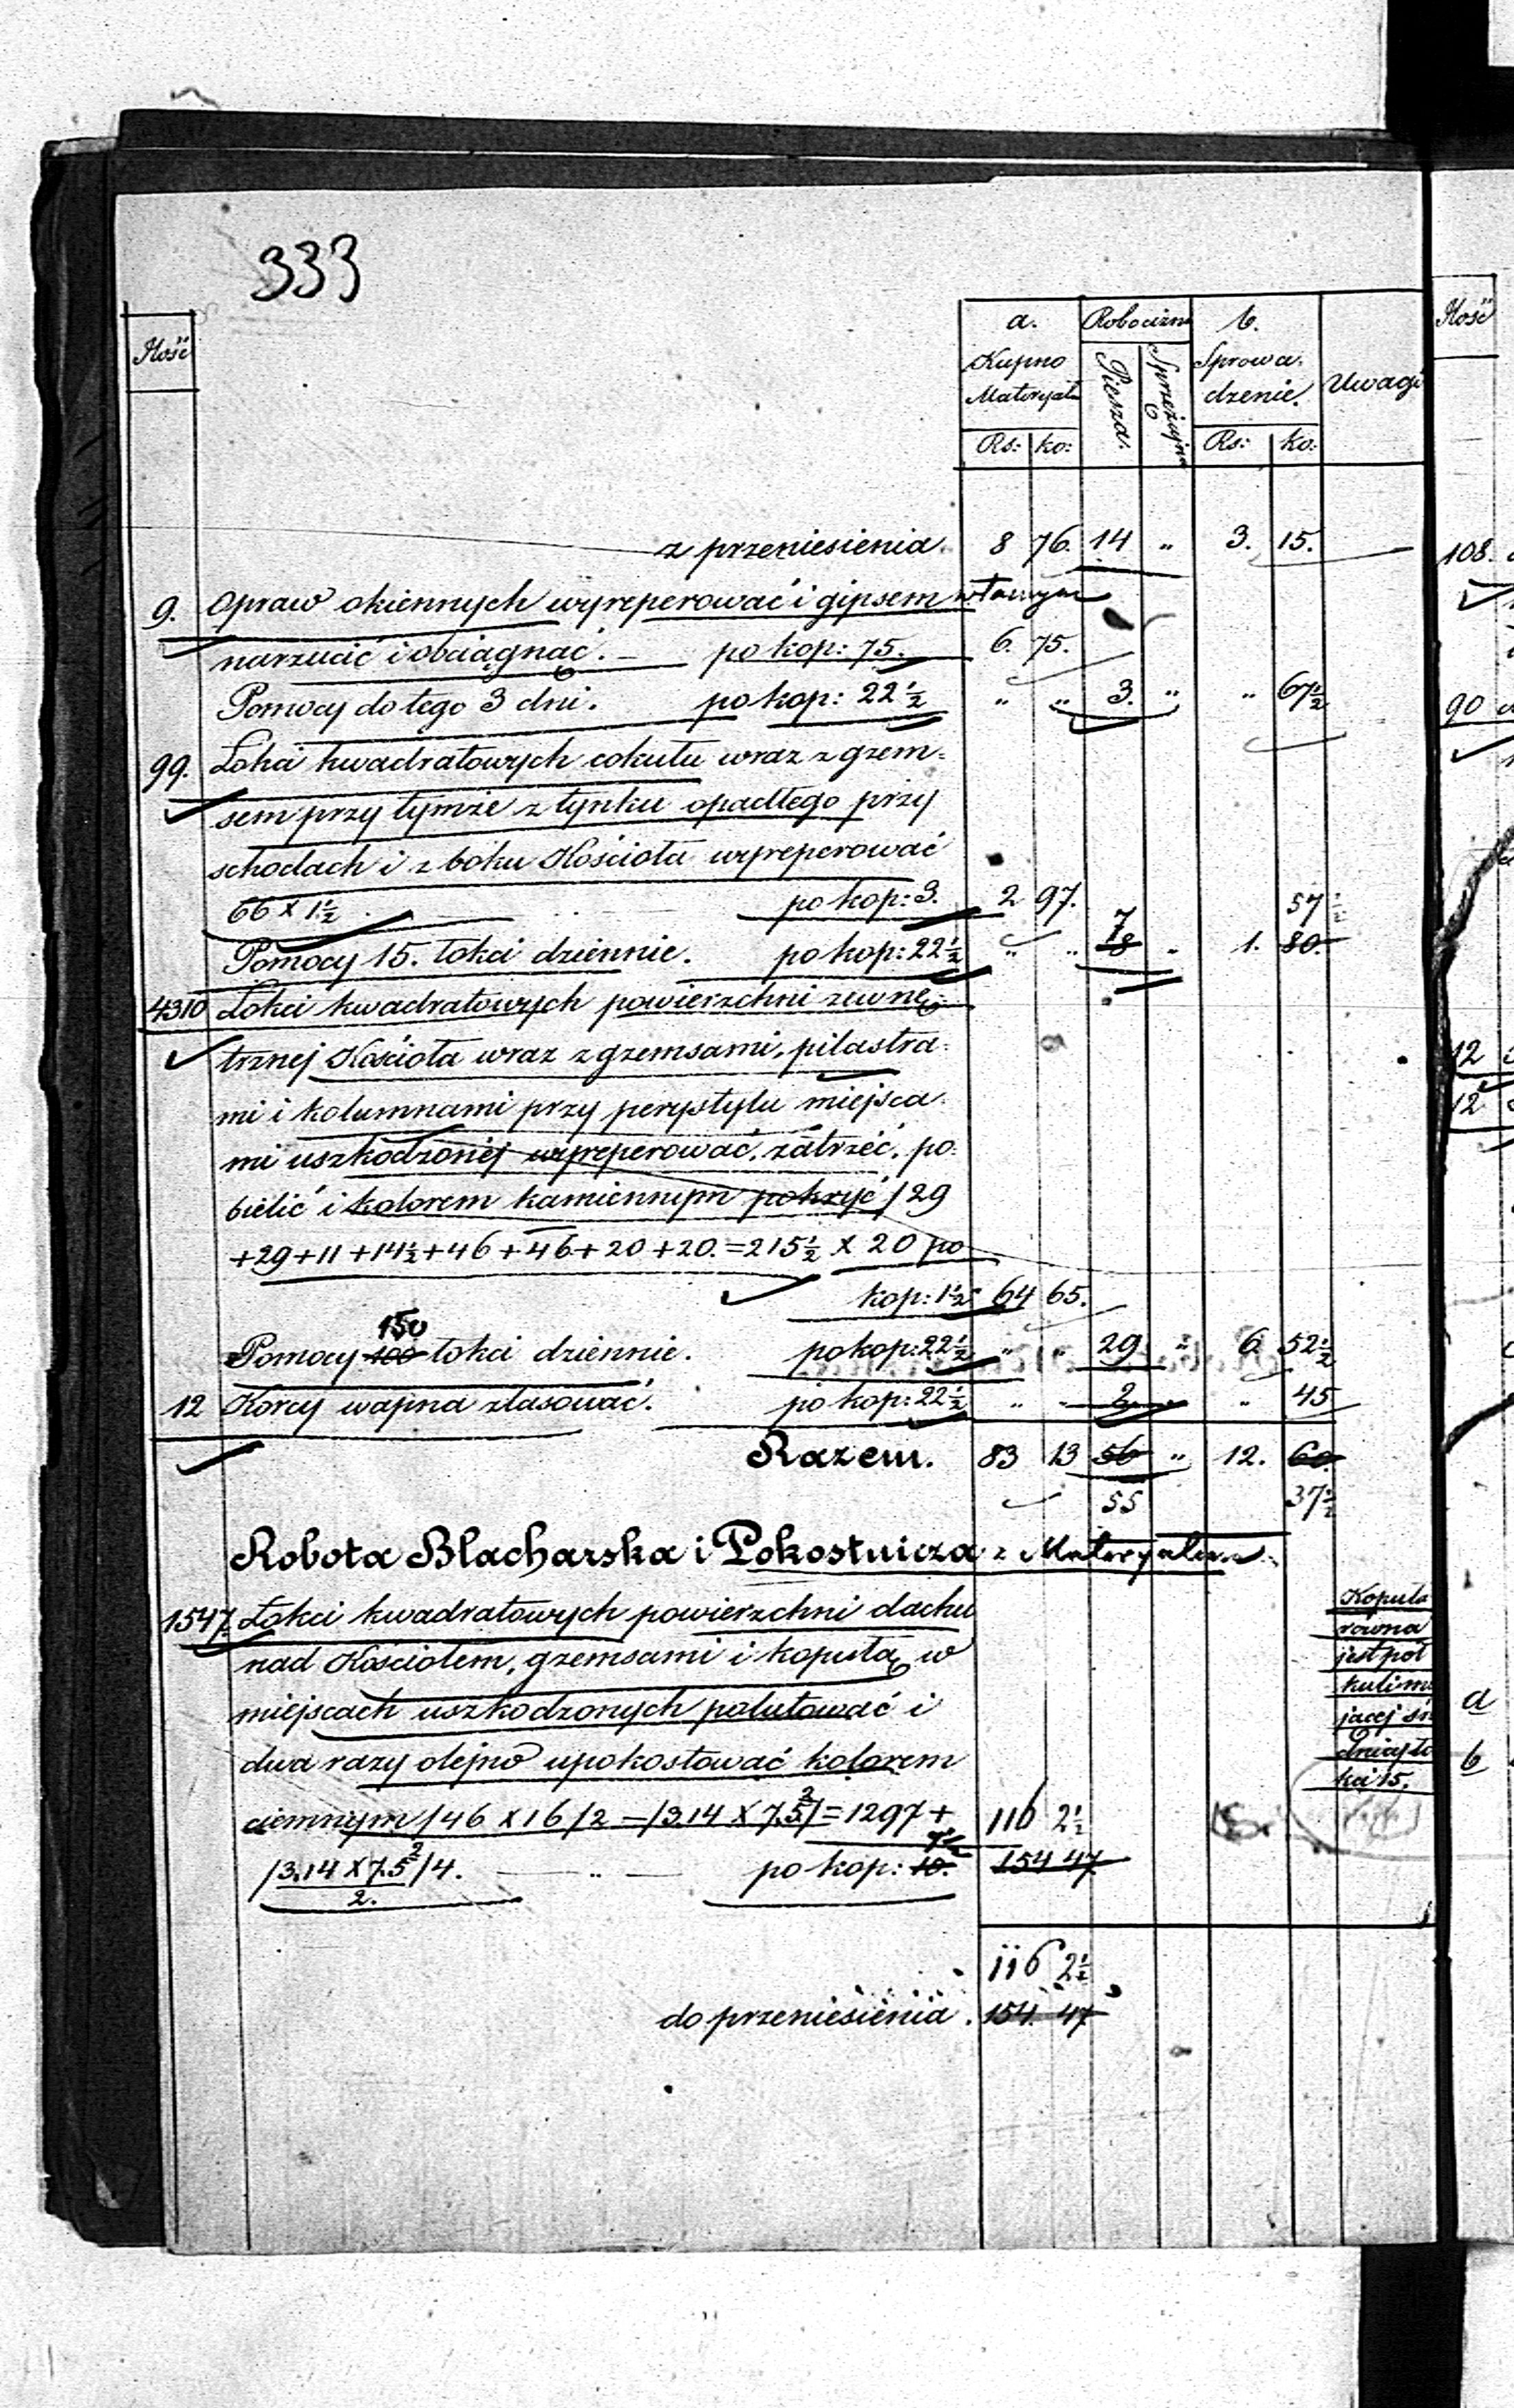 333
Ilość
a.
Kupno
Materyału
Rs: ko:
Robocizna
Piesza.
Sprzężajna
b.
Sprowa-
dzenie.
Rs: ko:
Uwagi
z przeniesienia. 8 76. 14 " 3. 15.
9. Opraw okiennych wyreperować i gipsem własnym
narzucić i obciągnąć. — po kop: 75. 6. 75.
Pomocy do tego 3 dni. po kop: 22½ " " 3. " " 67½
99. Łokci kwadratowych cokułu wraz z gzem-
sem przy tymże z tynku opadłego przy
schodach i z boku Kościoła wyreperować
66 x 1½ . po kop: 3. 2 97. 57½
Pomocy 15. łokci dziennie. po kop: 22½ " " 7 8 " 1. 80.
4310 Łokci kwadratowych powierzchni zewnę-
trznej Kościoła wraz z gzemsami, pilastra-
mi i kolumnami przy perystylu miejsca-
mi uszkodzonéj wyreperować, zatrzeć, po-
bielić i kolorem kamiennym pokryć /29
+29+11+14½+46+46+20+20.=215½ x 20 po
kop: 1½ 64 65.
150
Pomocy 100 łokci dziennie. po kop: 22½ " " 29 " 6 52½
12 Korcy wapna zlasować. po kop: 22½ " " 2 " " 45
Razem. 83 13 56 " 12. 60.
55 37½
Robota Blacharska i Pokostnicza z Materyałem
1547. Łokci kwadratowych powierzchni dachu
nad Kościołem, gzemsami i kopułą w
miejscach uszkodzonych polutować i
dwa razy olejno upokostować kolorem
ciemnym /46 x 16/2 – /3.14 x 7.5²/ = 1297 + 116 2½
7½
/3.14 x 7.5²/4. — " — po kop: 10. 154 47
2.
Kopuła
równa
jest pół
kuli ma
jącej śre
dnicy ło
kci 15.
116 2½
do przeniesienia. 154. 47
Ilość
108.
90
12
12
a
b